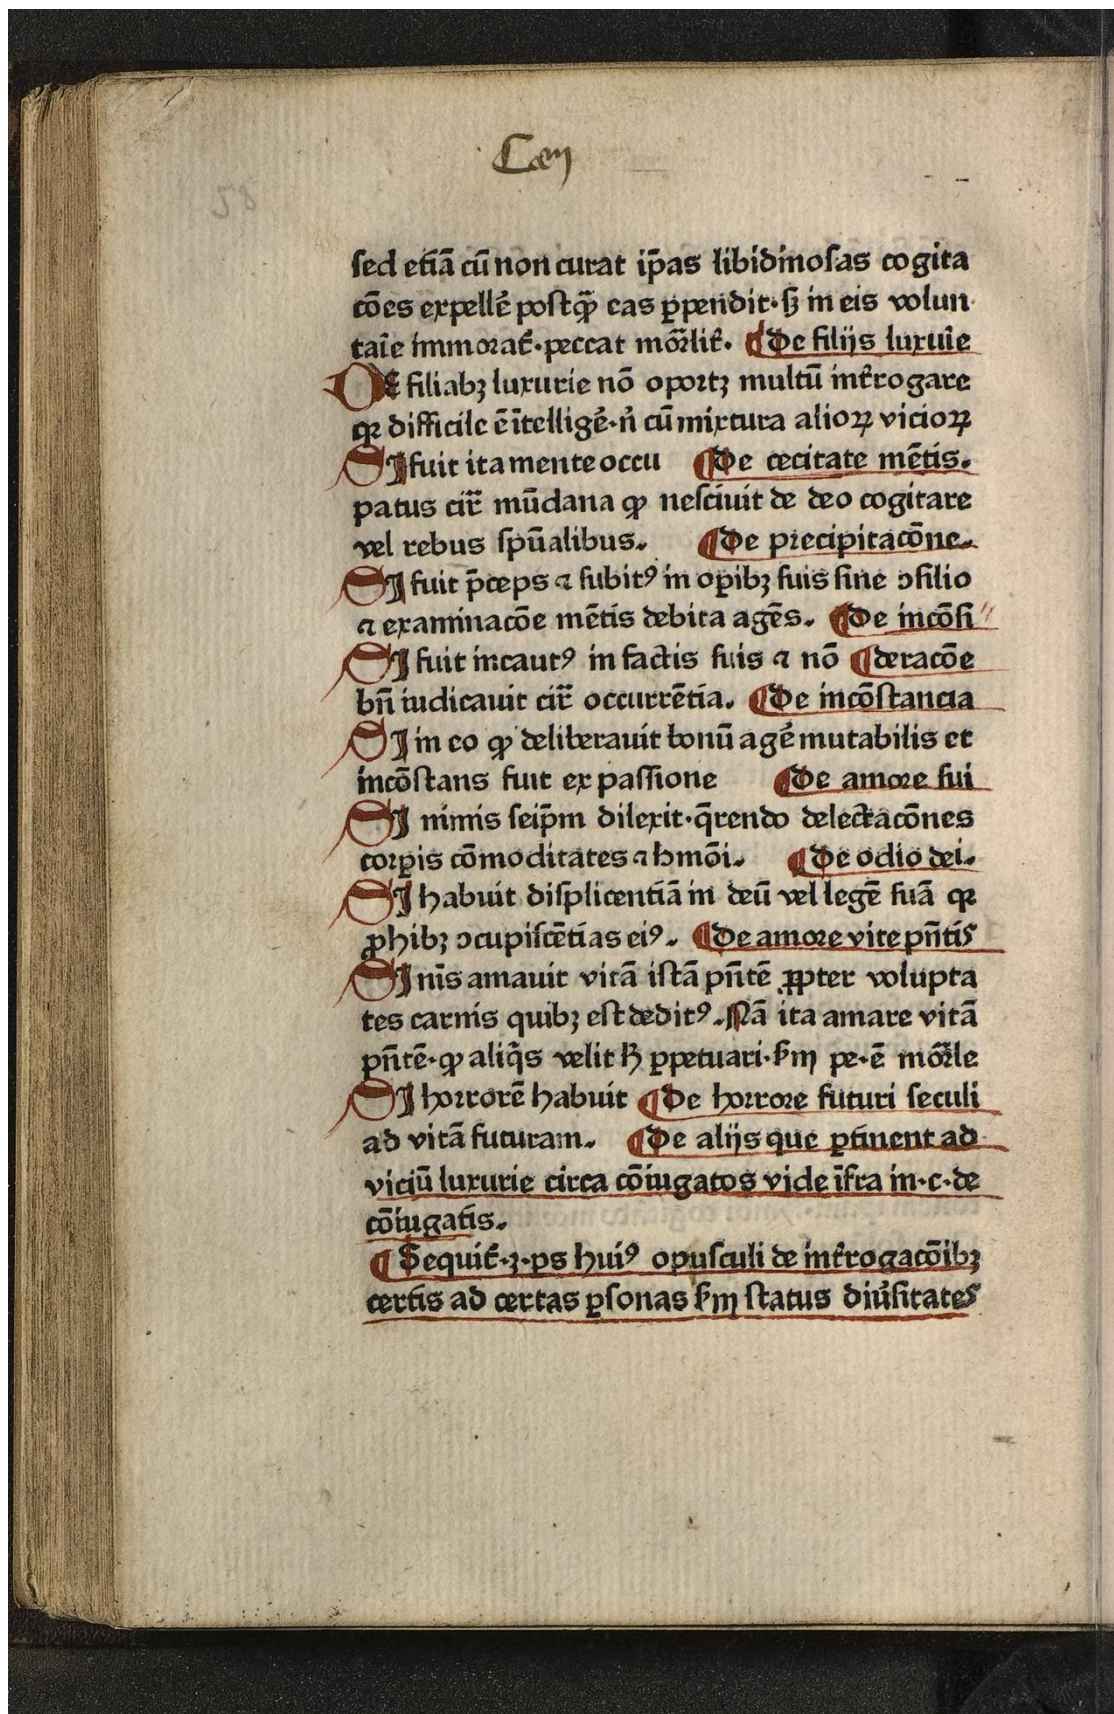 sed etiā cū non curat ip̄as libidinosas cogita
cōes expellē postq̄ȝ eas ꝑpendit·sꝫ in eis volun
taīe immorat̄·peccat mōrlit̄. ¶De filijs luxuīe
DE filiabꝫ luxurie nō oportꝫ multū int̄rogare
qꝛ difficile ē ītelligē·n̄ cū mixtura alioꝝ vicioꝝ
SI fuit ita mente occu ¶De cecitate mētis.
patus cir̄ mūdana ꝙ nescivit de deo cogitare
vel rebus spūalibus. ¶De precipitacōne.
SI fuit p̄ceps ⁊ subitꝰ in oꝑibꝫ suis sine ↄsilio
⁊ examinacōe mētis debita agēs. ¶De incōsi"
SI fuit incautꝰ in factis suis ⁊ nō ¶deracōe
bn̄ iudicauit cir̄ occurrētia. ¶De incōstancia
SI in eo ꝙ deliberauit bonū agē mutabilis et
incōstans fuit ex passione ¶De amore sui
SI nimis seip̄m dilexit·q̄rendo delectacōnes
corꝑis cōmoditates ⁊ hmōi. ¶De odio dei.
SI habuit displicentiā in deū vel legē suā qꝛ
ꝓhibꝫ ↄcupiscētias eiꝰ. ¶De amore vite pn̄tis
SI nīs amauit vitā istā pn̄tē ꝓpter volupta
tes carnis quibꝫ est deditꝰ. Nā ita amare vitā
pn̄tē·ꝙ aliq̄s velit hꝫ ꝑpetuari·ẜm pe·ē mōrle
SI horrorē habuit ¶De horrore futuri seculi
ad vitā futuram. ¶De alijs que ꝑtinent ad
viciū luxurie circa cōiugatos vide īfra in·c·de
cōiugatis.
¶Sequit̄·ꝫ·ps huiꝰ opusculi de int̄rogacōibꝫ
certis ad certas ꝑsonas ẜm status diūsitates